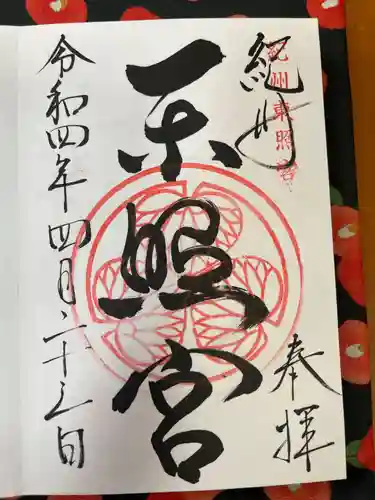 奉拝
紀州
紀州東照宮
東照宮
令和四年四月二十三日